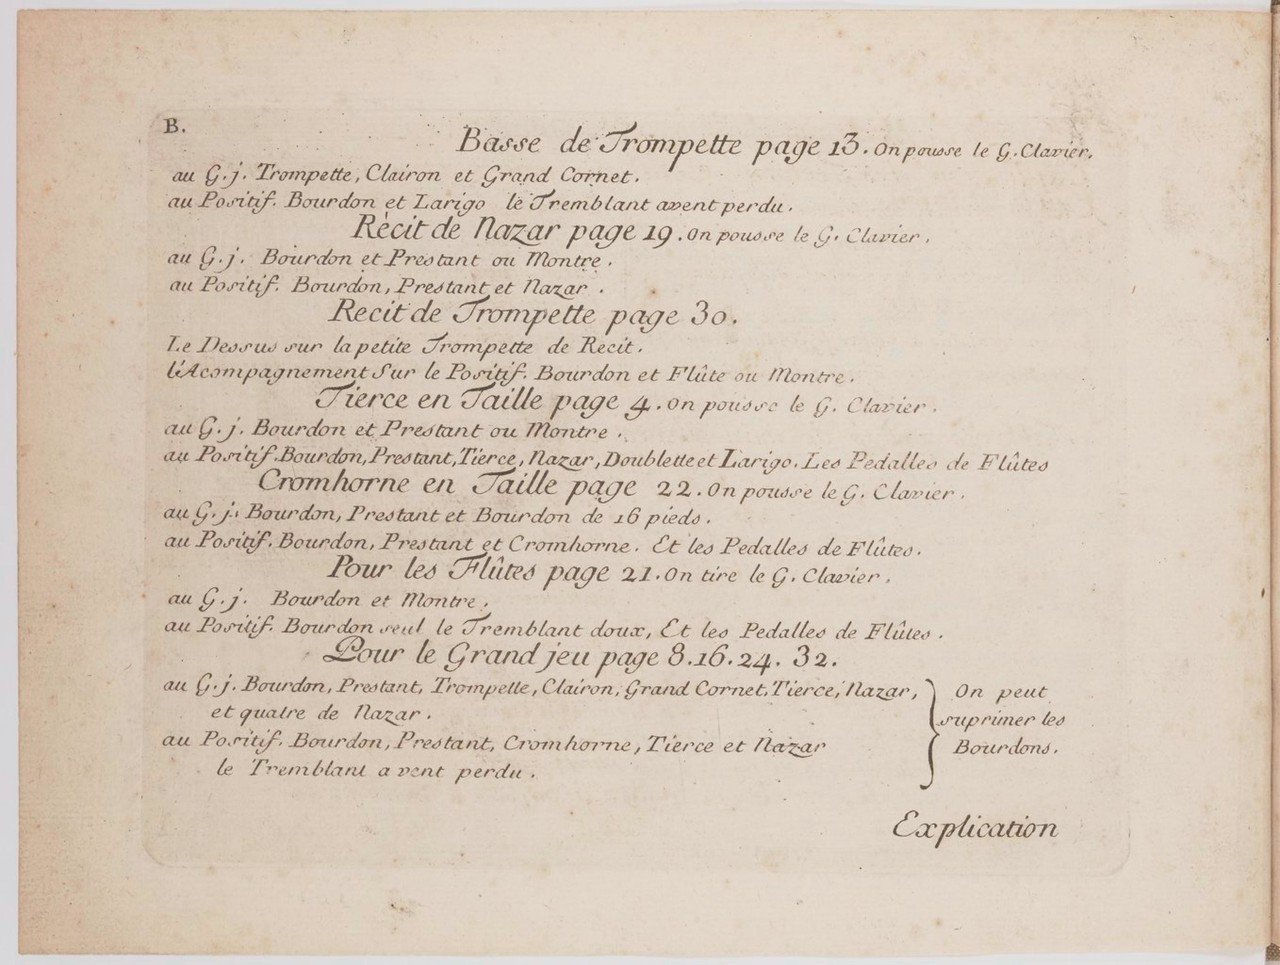 B.
Basse de Trompette page 13. On pousse le G. Clavier.
au G. j. Trompette, Clairon et Grand Cornet.
au Positif. Bourdon et Larigo le Tremblant avent perdu.
Rècit de Nazar page 19. On pousse le G. Clavier.
au G. j. Bourdon et Prestant ou Montre.
au Positif. Bourdon, Prestant et Nazar.
Recit de Trompette page 30.
Le Dessus sur la petite Trompette de Recit.
l'Acompagnement Sur le Positif. Bourdon et Flûte ou Montre.
Tierce en Taille page 4. On pousse le G. Clavier.
au G. j. Bourdon et Prestant ou Montre.
au Positif. Bourdon, Prestant, Tierce, Nazar, Doublette et Larigo. Les Pedalles de Flûtes
Cromhorne en Taille page 22. On pousse le G. Clavier.
au G. j. Bourdon, Prestant et Bourdon de 16 pieds.
au Positif. Bourdon, Prestant et Cromhorne. Et les Pedalles de Flûtes.
Pour les Flûtes page 21. On tire le G. Clavier.
au G. j. Bourdon et Montre.
au Positif. Bourdon seul le Tremblant doux, Et les Pedalles de Flûtes.
Pour le Grand jeu page 8. 16. 24. 32.
au G. j. Bourdon, Prestant, Trompette, Clairon, Grand Cornet, Tierce, Nazar,
et quatre de Nazar.
au Positif. Bourdon, Prestant, Cromhorne, Tierce et Nazar
le Tremblant a vent perdu.
On peut
suprimer les
Bourdons.
Explication